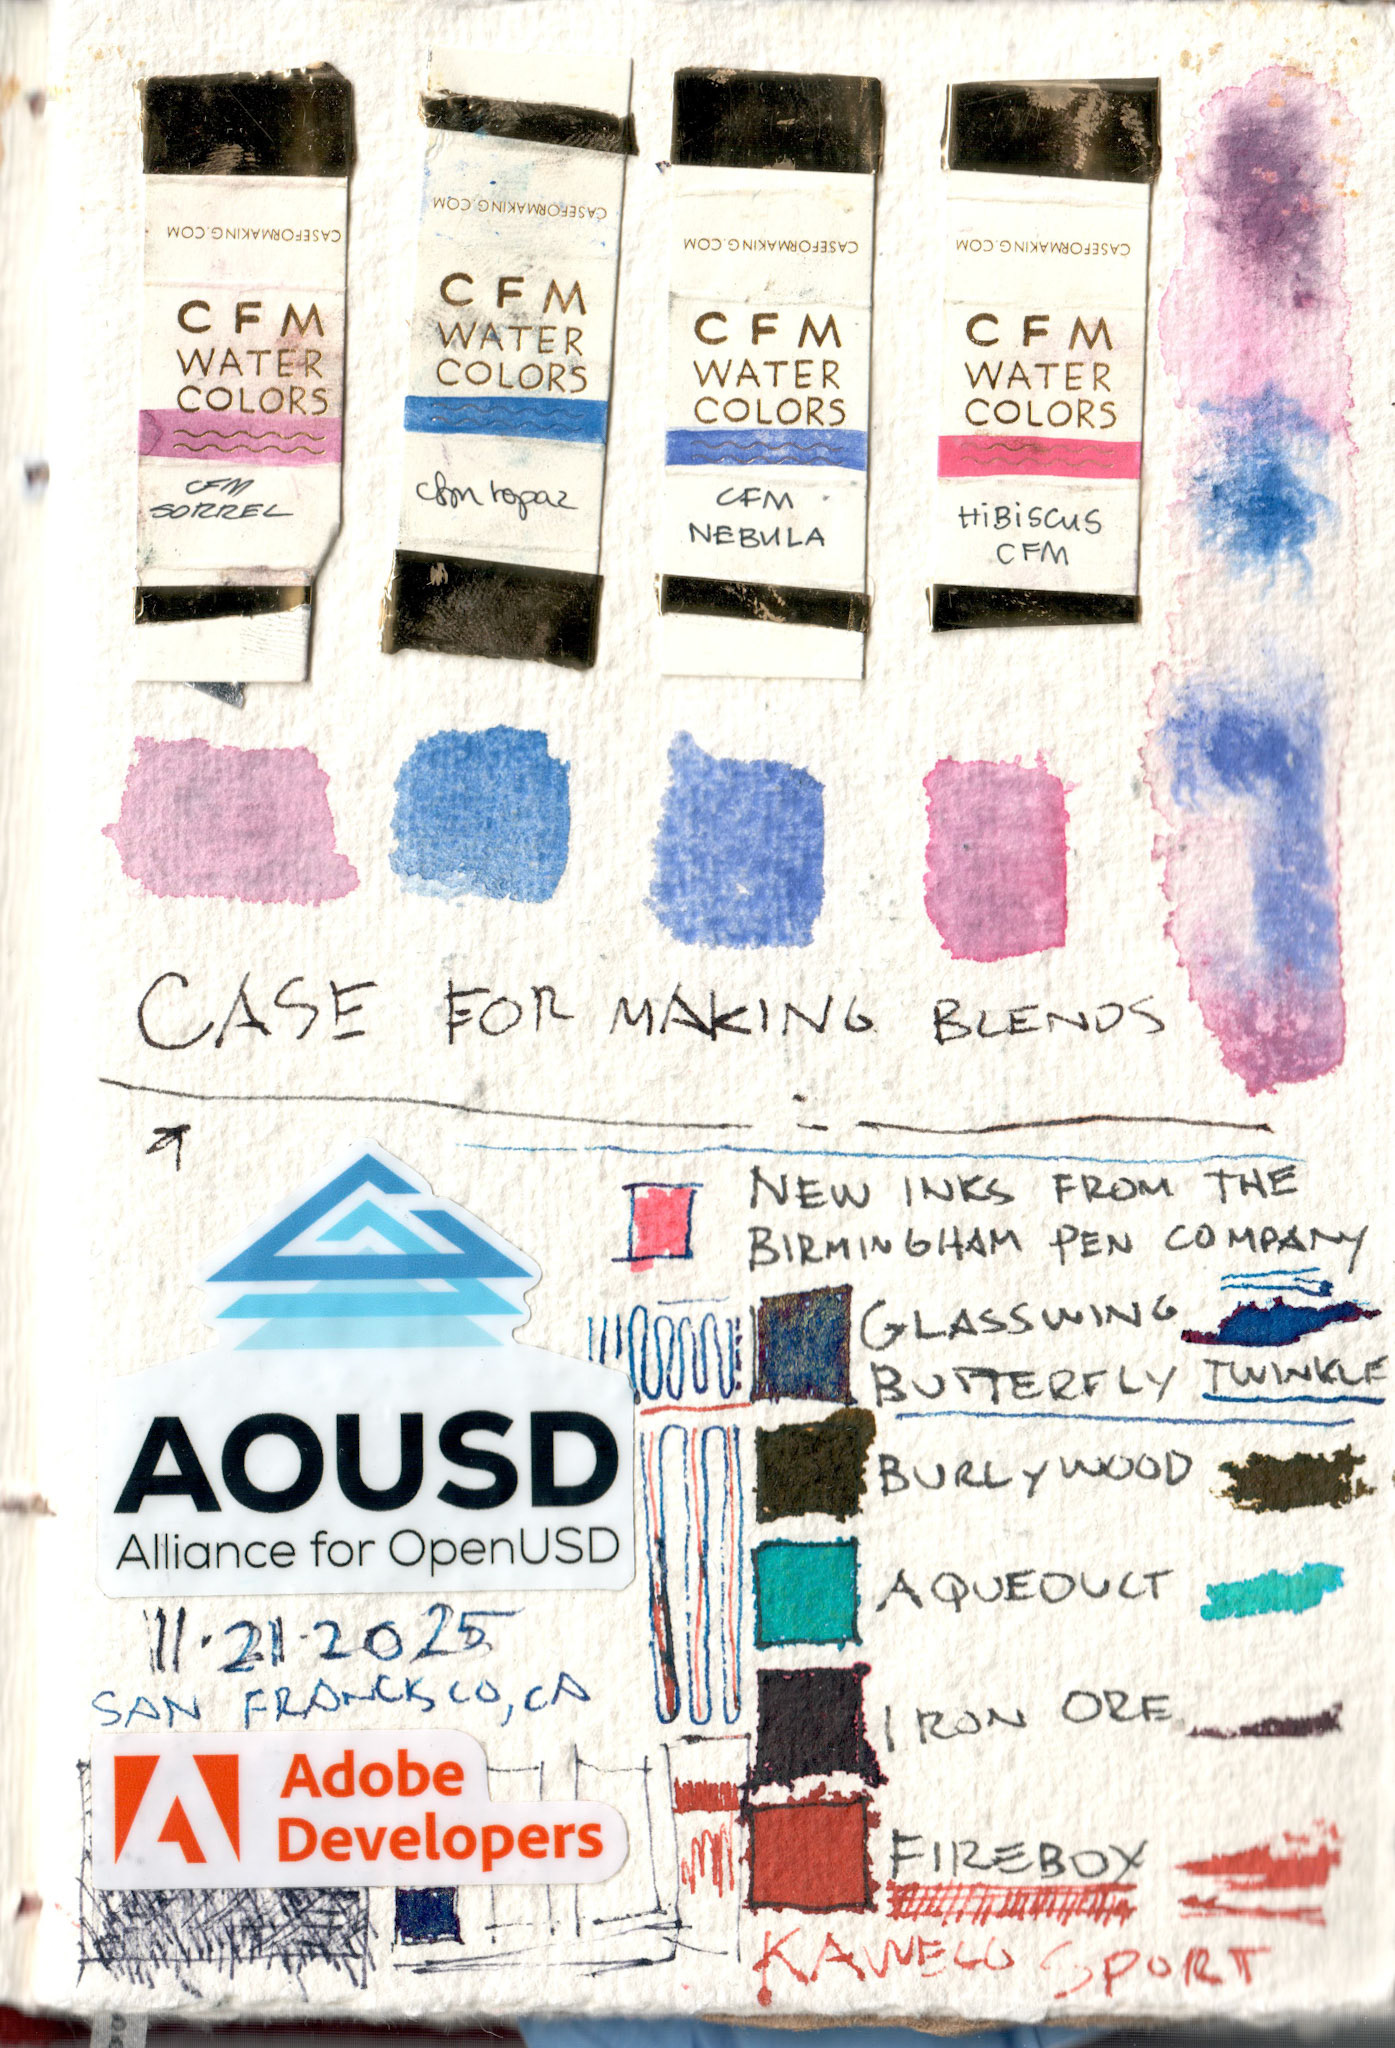 CASEFORMAKING.COM
CFM
WATER
COLORS
CFM
SORREL
CASEFORMAKING.COM
CFM
WATER
COLORS
cfm topaz
CASEFORMAKING.COM
CFM
WATER
COLORS
CFM
NEBULA
CASEFORMAKING.COM
CFM
WATER
COLORS
HIBISCUS
CFM
CASE FOR MAKING BLENDS
AOUSD
Alliance for OpenUSD
11.21.2025
SAN FRANCKSCO, CA
Adobe
Developers
NEW INKS FROM THE
BIRMINGHAM PEN COMPANY
GLASSWING
BUTTERFLY TWINKLE
BURLYWOOD
AQUEDUCT
IRON ORE
FIREBOX
KAWECO SPORT